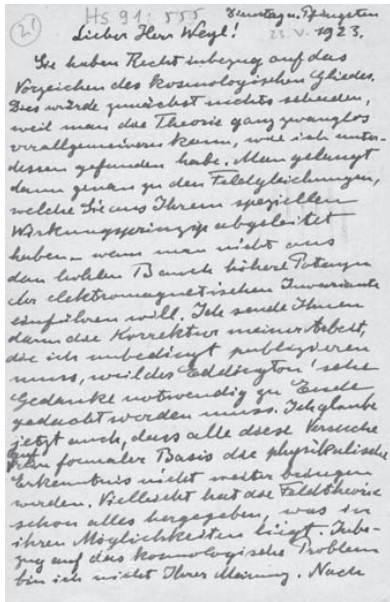 21 Hs 91:555 Dienstag n. Pfingsten
23. V. 1923.
Lieber Herr Weyl!
Sie haben Recht inbezug auf das
Vorzeichen des kosmologischen Gliedes.
Dies würde zunächst nichts schaden,
weil man die Theorie ganz zwanglos
verallgemeinern kann, wie ich unter-
dessen gefunden habe. Man gelangt
dann genau zu den Feldgleichungen,
welche Sie aus Ihrem speziellen
Wirkungsprinzip abgeleitet
haben - wenn man nicht aus
dem hohlen Bauch höhere Potenzen
der elektromagnetischen Invariante
einführen will. Ich sende Ihnen
dann die Korrektur meiner Arbeit,
die ich unbedingt publizieren
muss, weil des Eddington'sche
Gedanke notwendig zu Ende
gedacht werden muss. Ich glaube
jetzt auch, dass alle diese Versuche
auf rein formaler Basis die physikalische
Erkenntnis nicht weiter bringen
werden. Vielleicht hat die Feldtheorie
schon alles hergegeben, was in
ihren Möglichkeiten liegt. Inbe-
zug auf das kosmologische Problem
bin ich nicht Ihrer Meinung. Nach